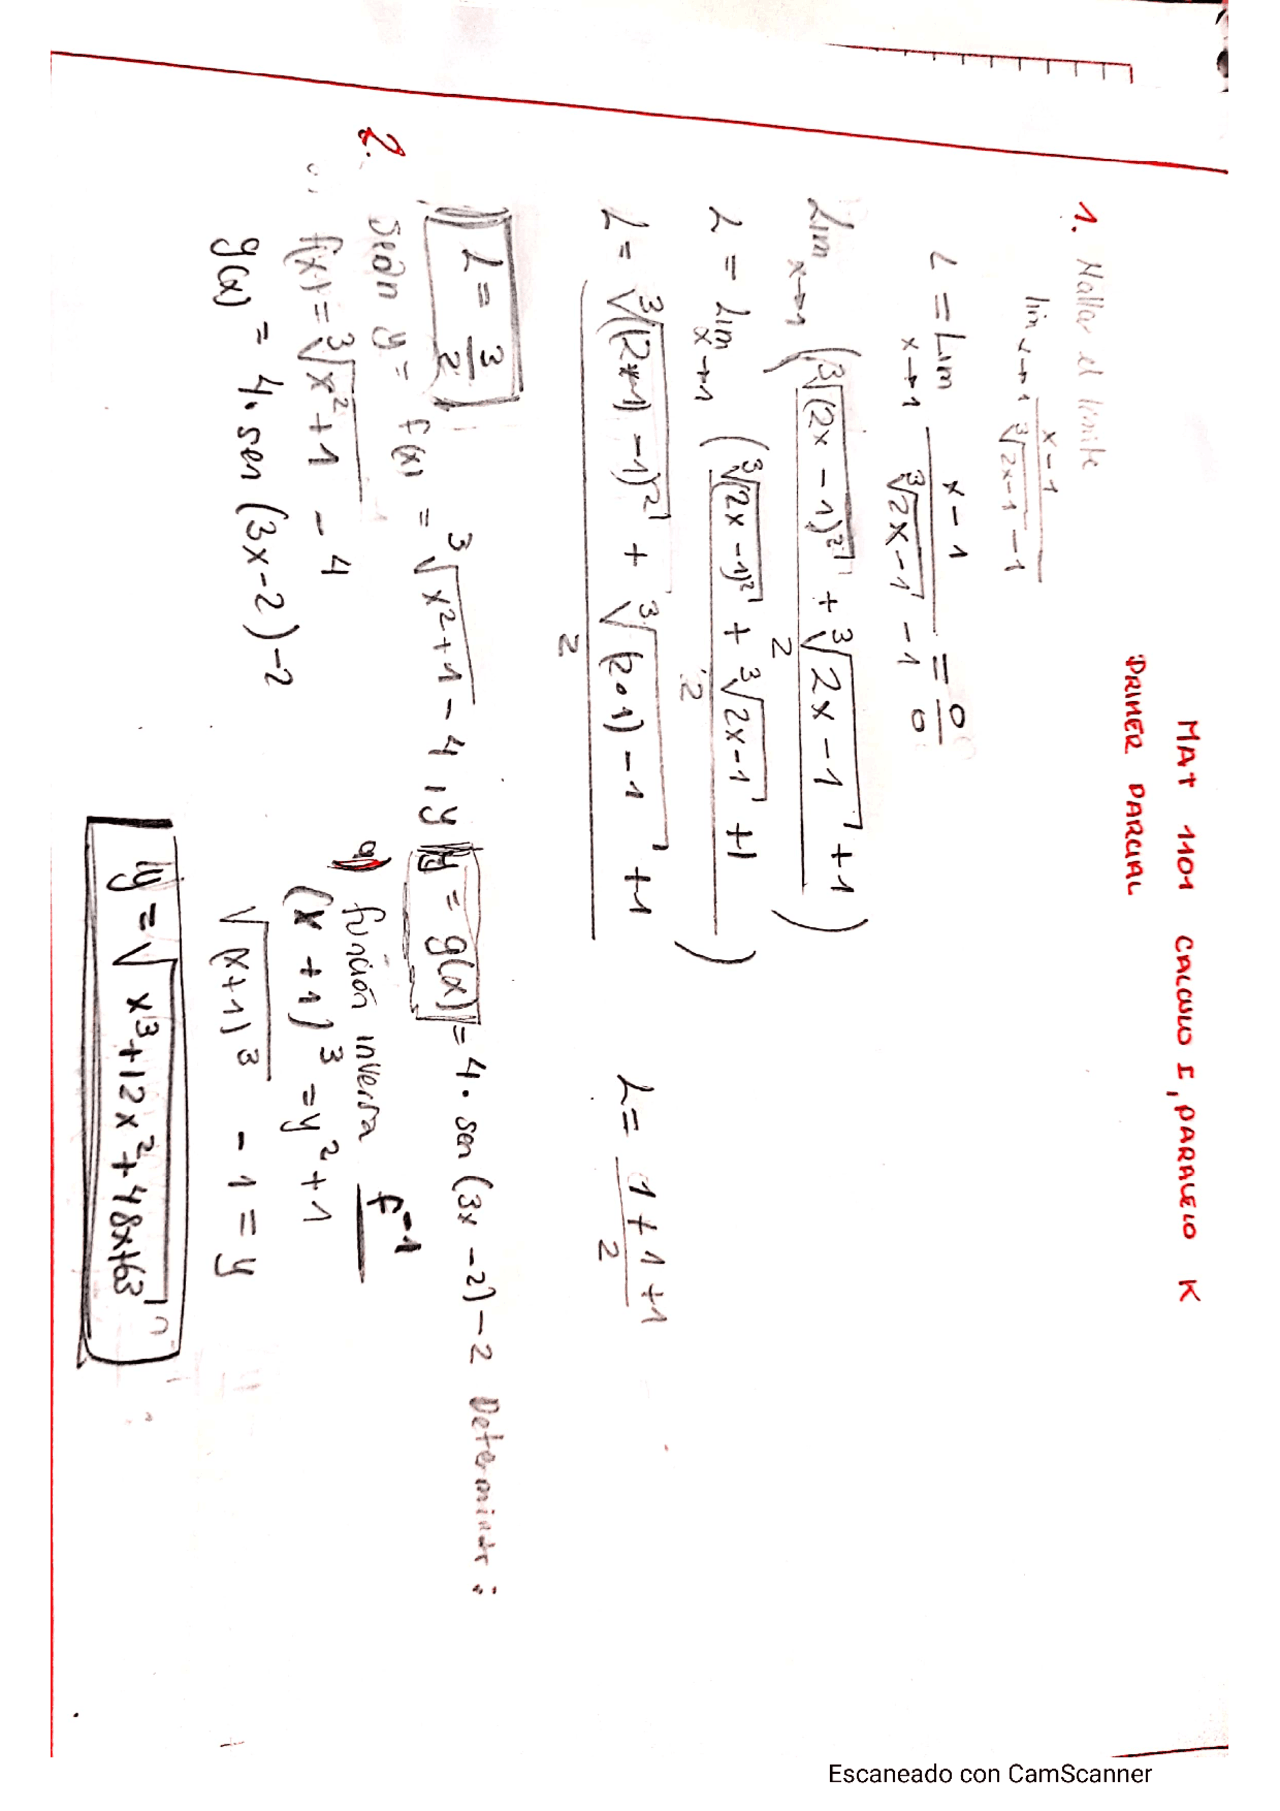 MAT 1101 CALCULO I, PARALELO K
PRIMER PARCIAL
1. Hallar el limite
lim x→1 x-1 / ∛2x-1 - 1
L = Lim x→1 x-1 / ∛2x-1 - 1 = 0/0
Lim x→1 (∛(2x-1)² + ∛2x-1 + 1 / 2)
L = Lim x→1 (∛(2x-1)² + ∛2x-1 + 1 / 2)
L = ∛((2·1)-1)² + ∛(2·1)-1 + 1 / 2
L = 1+1+1 / 2
L = 3/2
2. Sean y = f(x) = ∛x²+1 - 4, y y = g(x) = 4·sen(3x-2)-2 Determinar:
f(x) = ∛x²+1 - 4
g(x) = 4·sen(3x-2)-2
a) función inversa f⁻¹
(x+1)³ = y²+1
√(x+1)³ - 1 = y
y = √x³+12x²+48x+63
Escaneado con CamScanner